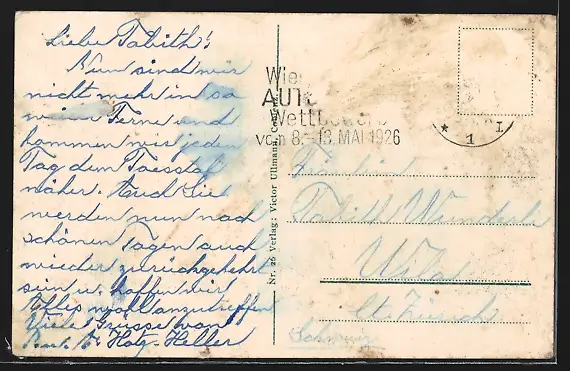 Liebe Tabith!
Nun sind wir
nicht mehr in so
weiter Ferne und
kommen wir jeden
Tag dem Tösstal
näher. Auch Sie
werden nun nach
schönen Tagen auch
wieder zurückgekehrt
sein u. hoffen wir
Alles wohl anzutreffen
Viele Grüsse von
Hotz-Heller
Nr. 25 Verlag: Victor Ullmann,
Wie
AUTO
Wettbewerb
vom 8.-13. MAI 1926
* 1 I
Wila
Kt. Zürich
Schweiz